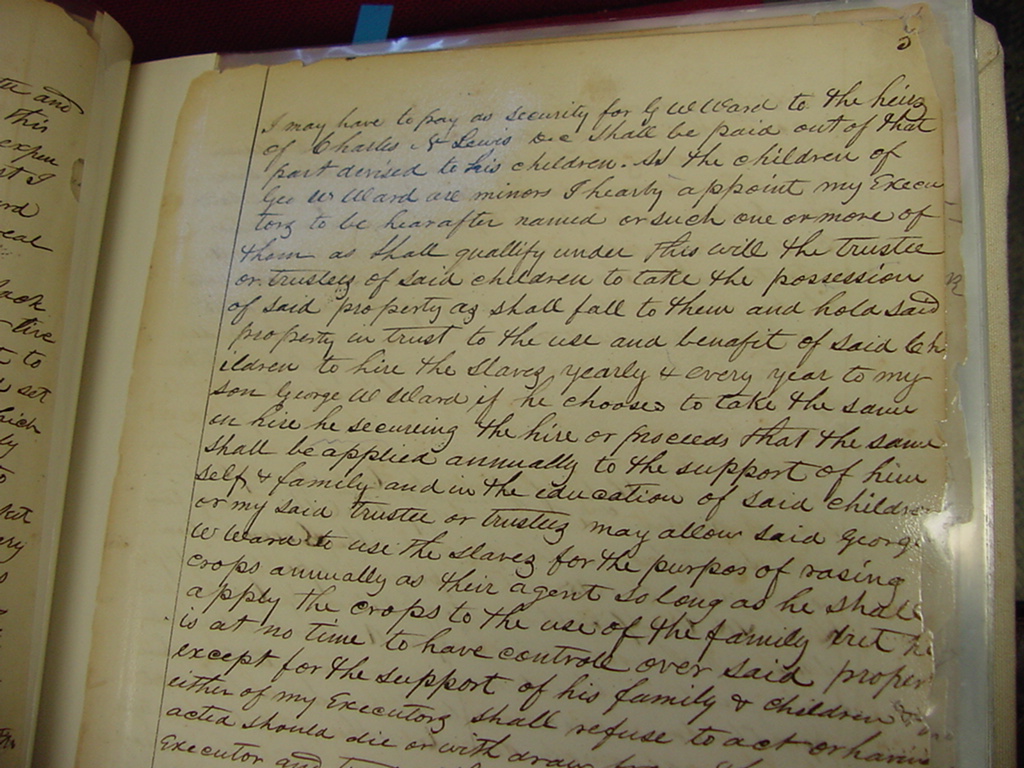 ta and
this
expen
st I
ard
real
ack
tire
t to
set
hich
ly
to
put
ery
5
I may have to pay as security for G W Ward to the heirs
of Charles N Lewis Dec shall be paid out of that
part devised to his children. As the children of
Geo W Ward are minors I hearby appoint my Execu
tors to be hearafter named or such one or more of
them as shall quallify under this will the trustee
or trustees of said children to take the possession
of said property as shall fall to them and hold said
property in trust to the use and benafit of said Ch
ildren to hire the slaves yearly & every year to my
son George W Ward if he chooses to take the same
on hire he secureing the hire or proceeds that the same
shall be applied annually to the support of him
self & family and in the education of said children
or my said trustee or trustees may allow said George
W Ward to use the slaves for the purpos of rasing
crops annually as their agent so long as he shall
apply the crops to the use of the family but he
is at no time to have controle over said proper
except for the support of his family & children &
either of my Executors shall refuse to act or having
acted should die or with draw
Executor and